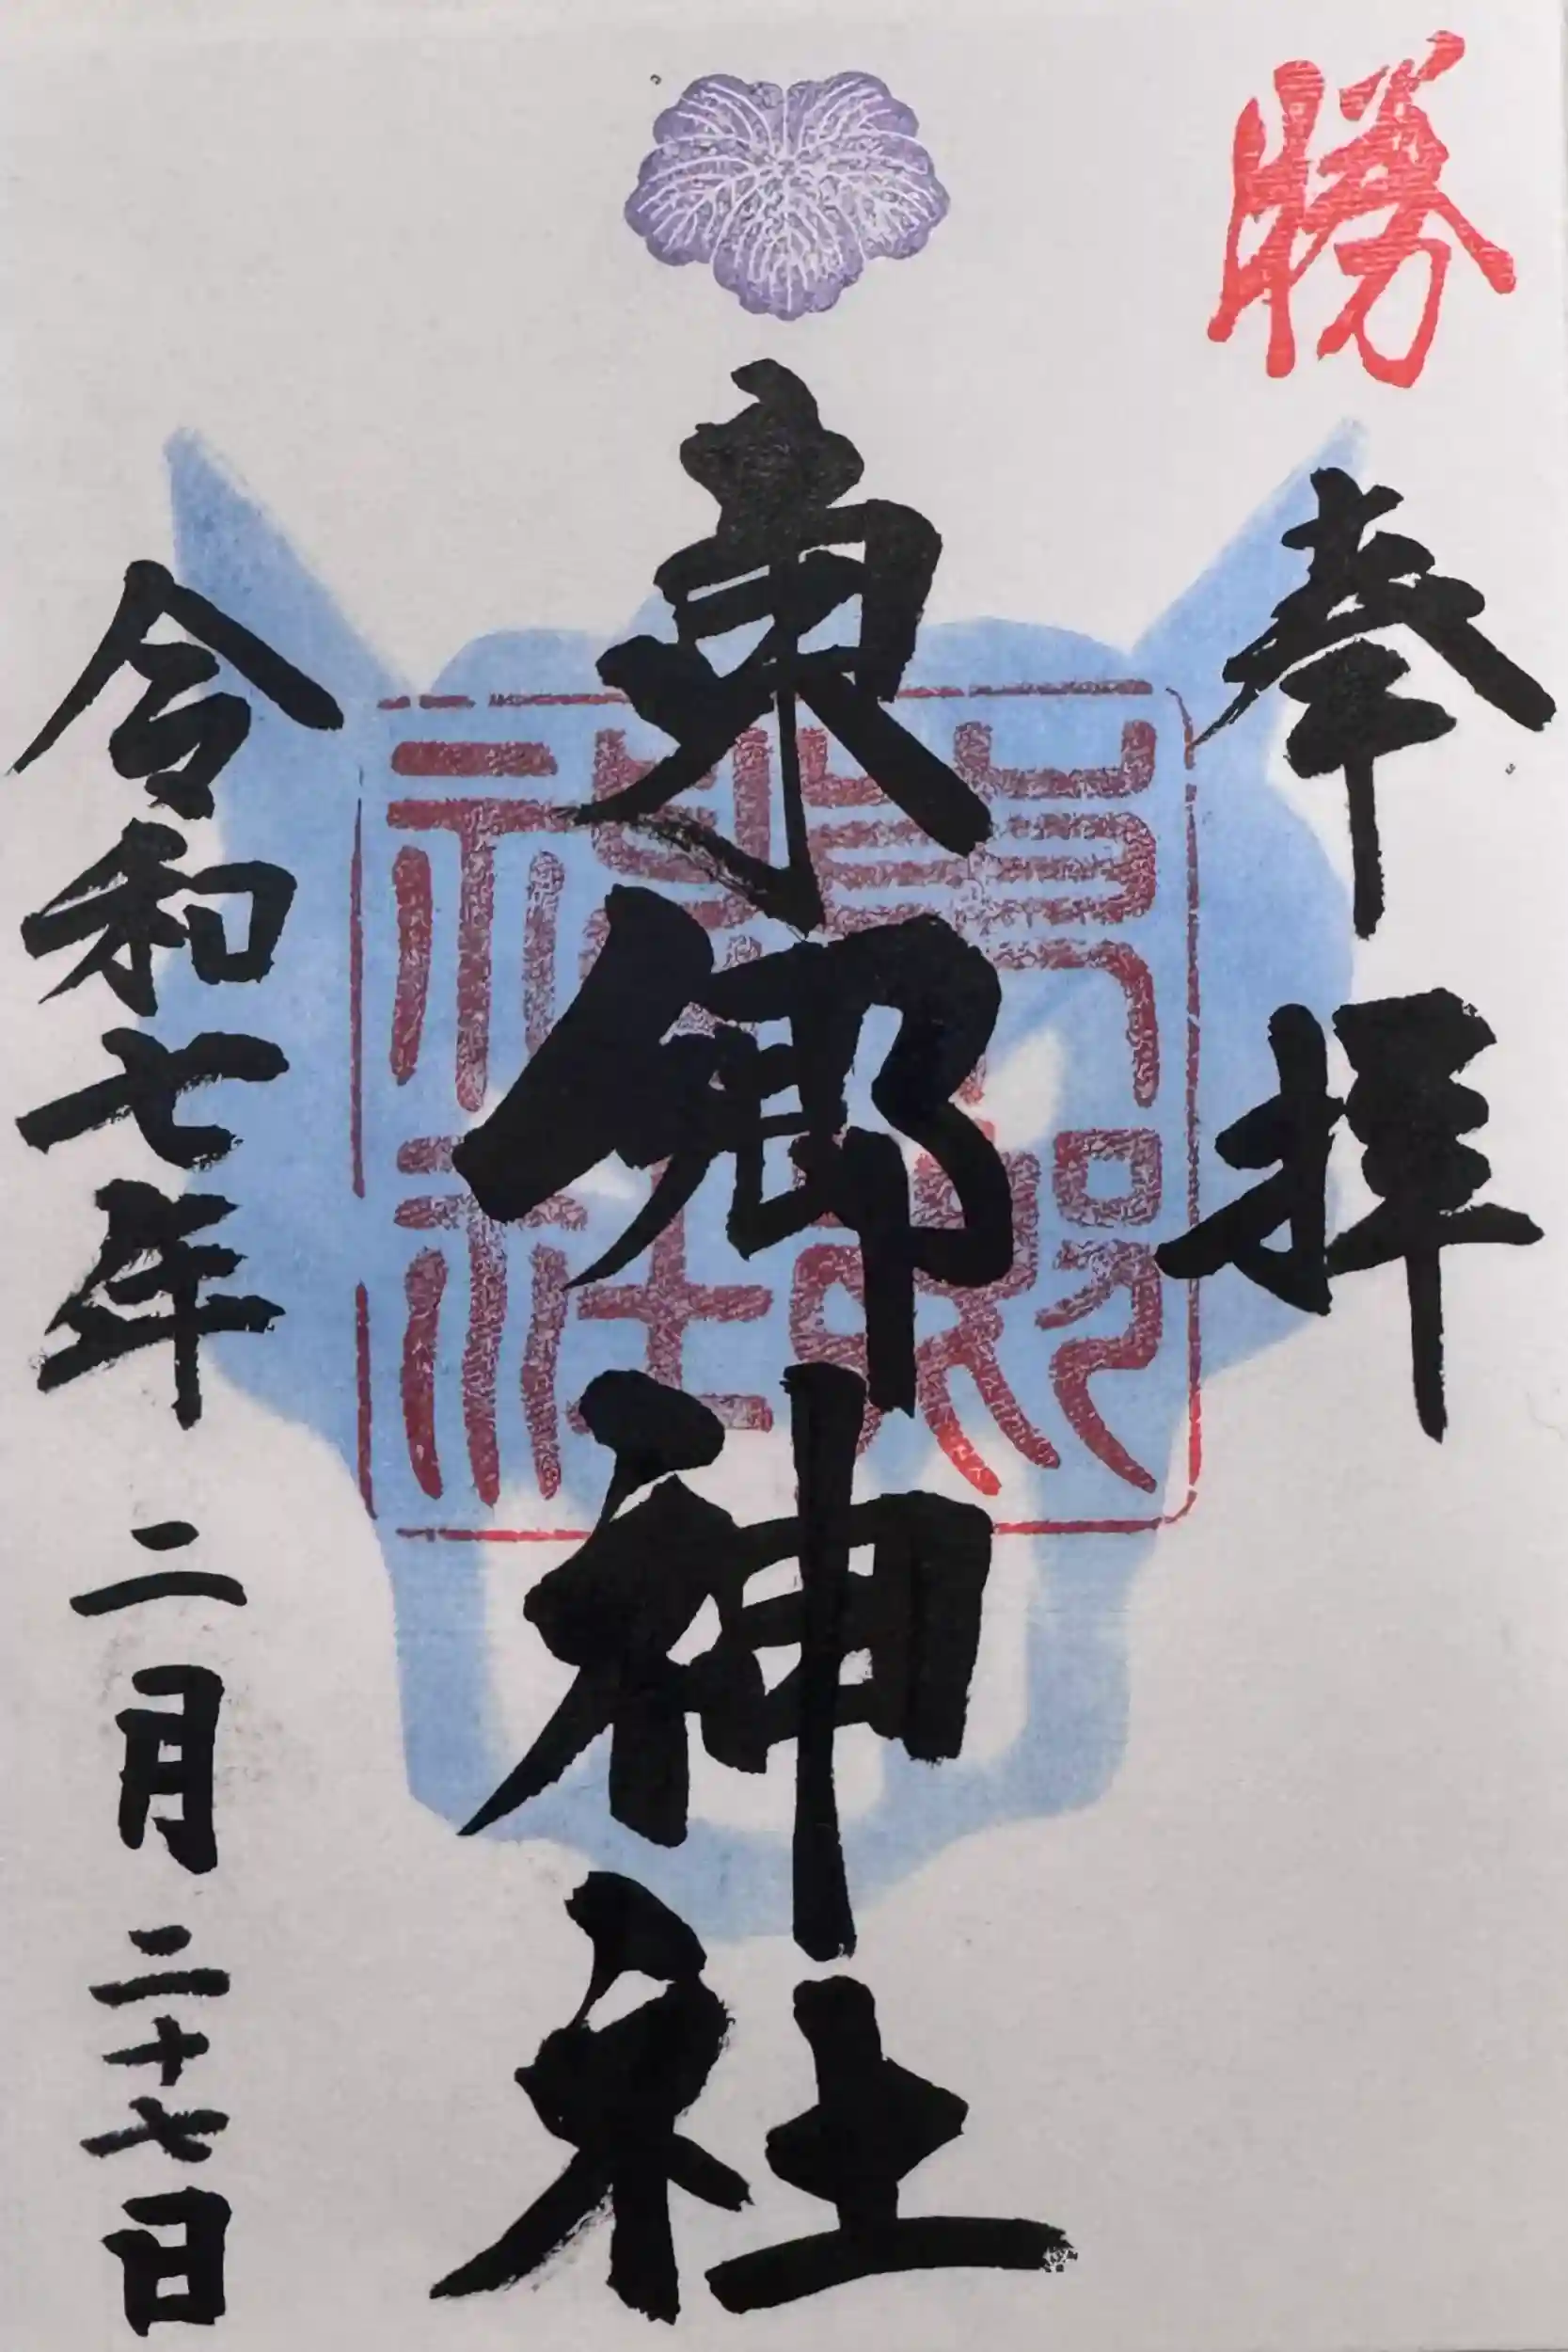 勝
奉拝
東郷神社
令和七年二月二十七日